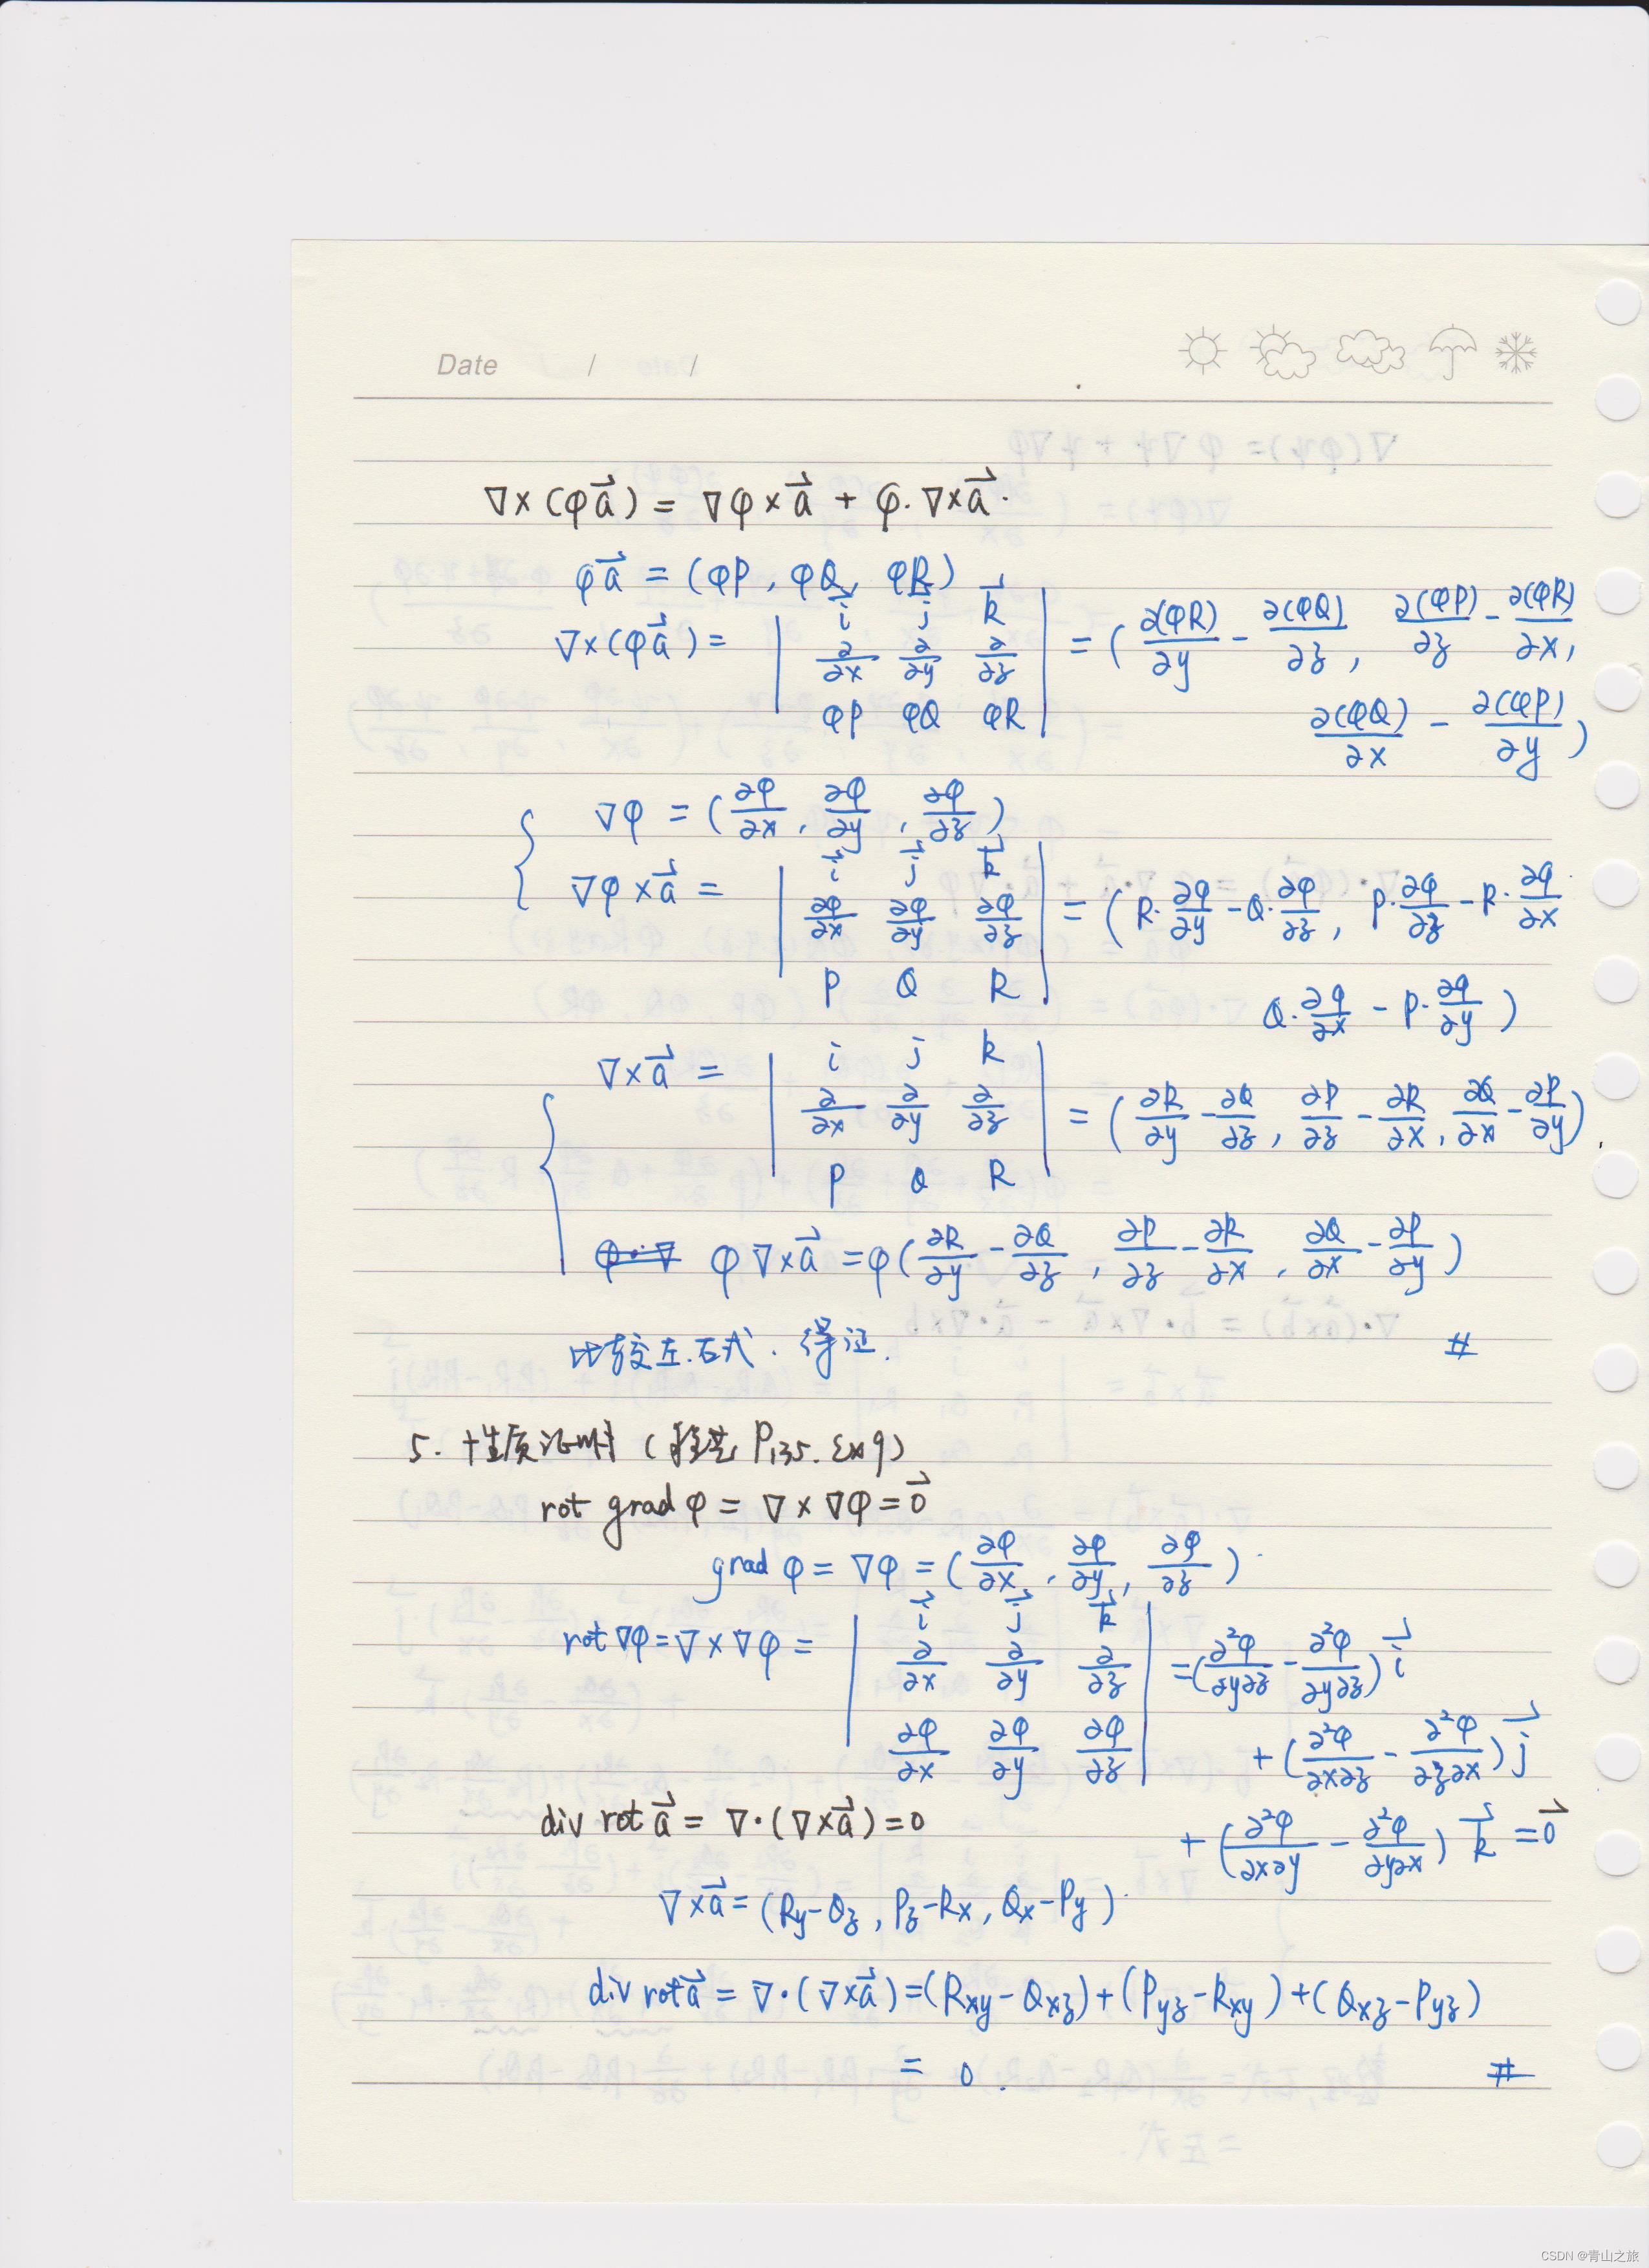 Date / /
∇×(φa⃗) = ∇φ×a⃗ + φ·∇×a⃗.
φa⃗ = (φP, φQ, φR)
∇×(φa⃗) = | i⃗ j⃗ k⃗ ; ∂/∂x ∂/∂y ∂/∂z ; φP φQ φR | = ( ∂(φR)/∂y − ∂(φQ)/∂z, ∂(φP)/∂z − ∂(φR)/∂x,
∂(φQ)/∂x − ∂(φP)/∂y )
∇φ = ( ∂φ/∂x, ∂φ/∂y, ∂φ/∂z )
∇φ×a⃗ = | i⃗ j⃗ k⃗ ; ∂φ/∂x ∂φ/∂y ∂φ/∂z ; P Q R | = ( R·∂φ/∂y − Q·∂φ/∂z, P·∂φ/∂z − R·∂φ/∂x
Q·∂φ/∂x − P·∂φ/∂y )
∇×a⃗ = | i j k ; ∂/∂x ∂/∂y ∂/∂z ; P Q R | = ( ∂R/∂y − ∂Q/∂z, ∂P/∂z − ∂R/∂x, ∂Q/∂x − ∂P/∂y ).
φ∇×a⃗ = φ( ∂R/∂y − ∂Q/∂z, ∂P/∂z − ∂R/∂x, ∂Q/∂x − ∂P/∂y )
比较左.右式.得证. #
5. 性质证明 ( P135. Ex9)
rot grad φ = ∇×∇φ = 0⃗
grad φ = ∇φ = ( ∂φ/∂x, ∂φ/∂y, ∂φ/∂z ).
rot ∇φ = ∇×∇φ = | i⃗ j⃗ k⃗ ; ∂/∂x ∂/∂y ∂/∂z ; ∂φ/∂x ∂φ/∂y ∂φ/∂z | = ( ∂²φ/∂y∂z − ∂²φ/∂y∂z ) i⃗
+ ( ∂²φ/∂x∂z − ∂²φ/∂z∂x ) j⃗
+ ( ∂²φ/∂x∂y − ∂²φ/∂y∂x ) k⃗ = 0⃗
div rot a⃗ = ∇·(∇×a⃗) = 0
∇×a⃗ = (Ry−Qz, Pz−Rx, Qx−Py).
div rot a⃗ = ∇·(∇×a⃗) = (Rxy−Qxz)+(Pyz−Rxy)+(Qxz−Pyz)
= 0. #
CSDN @青山之旅